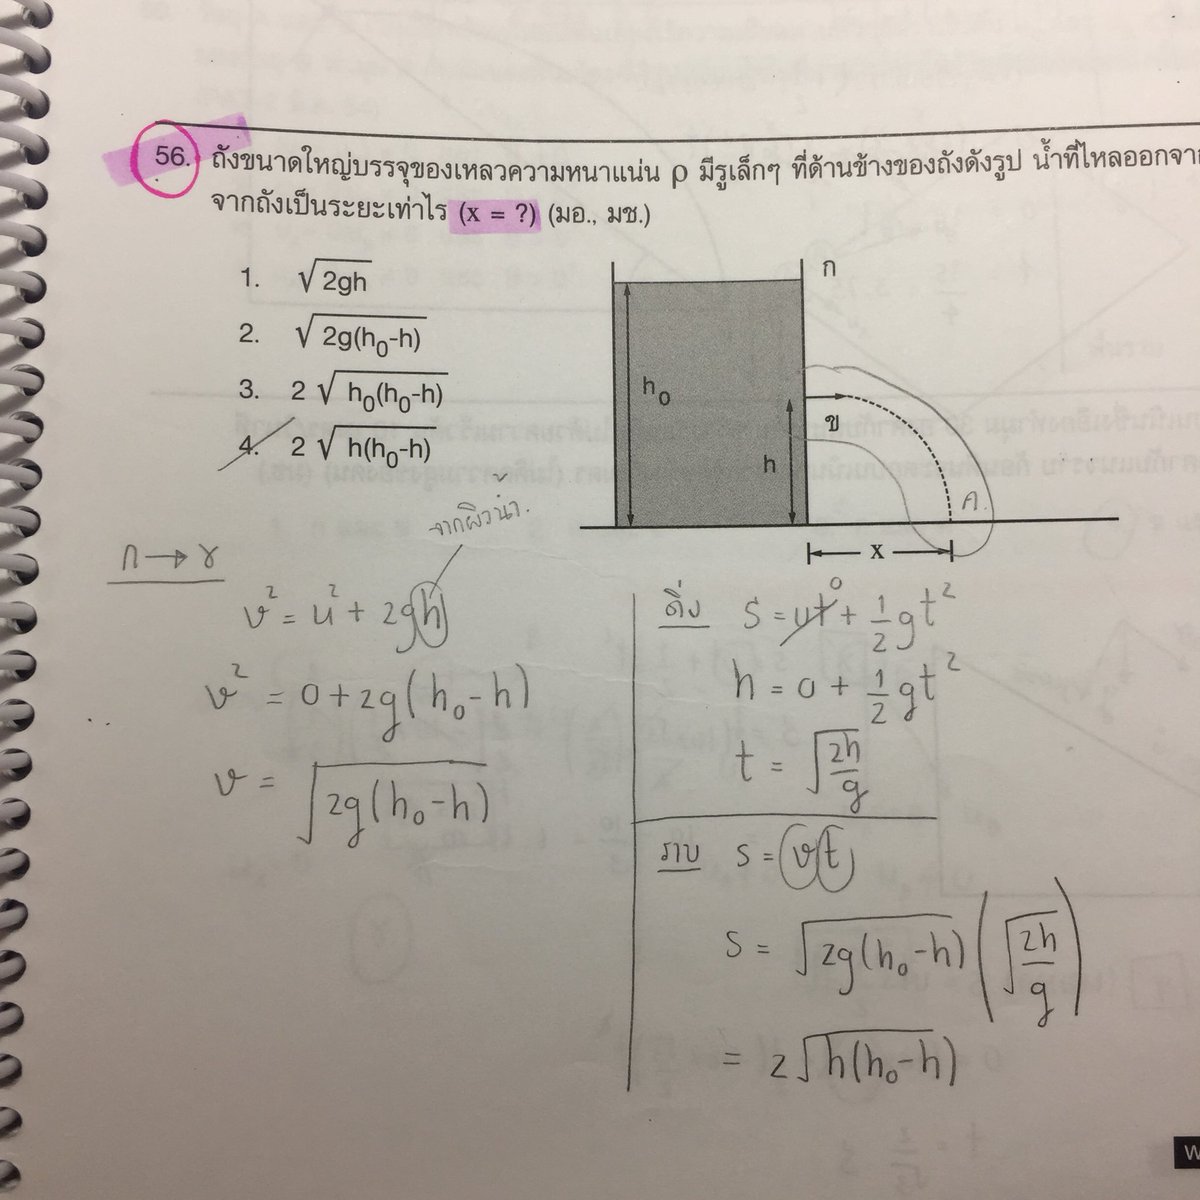 56. ถังขนาดใหญ่บรรจุของเหลวความหนาแน่น ρ มีรูเล็กๆ ที่ด้านข้างของถังดังรูป น้ำที่ไหลออกจาก
จากถังเป็นระยะเท่าไร (x = ?) (มอ., มช.)
1. √2gh
2. √2g(h₀-h)
3. 2 √h₀(h₀-h)
4. 2 √h(h₀-h)
ก
h₀
ข
h
A.
x
จากผิวน้ำ.
ก → ข
v² = u² + 2gh
v² = 0 + 2g(h₀-h)
v = √2g(h₀-h)
ดิ่ง S = ut⁰ + 1/2 gt²
h = 0 + 1/2 gt²
t = √2h/g
ราบ s = vt
s = √2g(h₀-h) (√2h/g)
= 2√h(h₀-h)
W